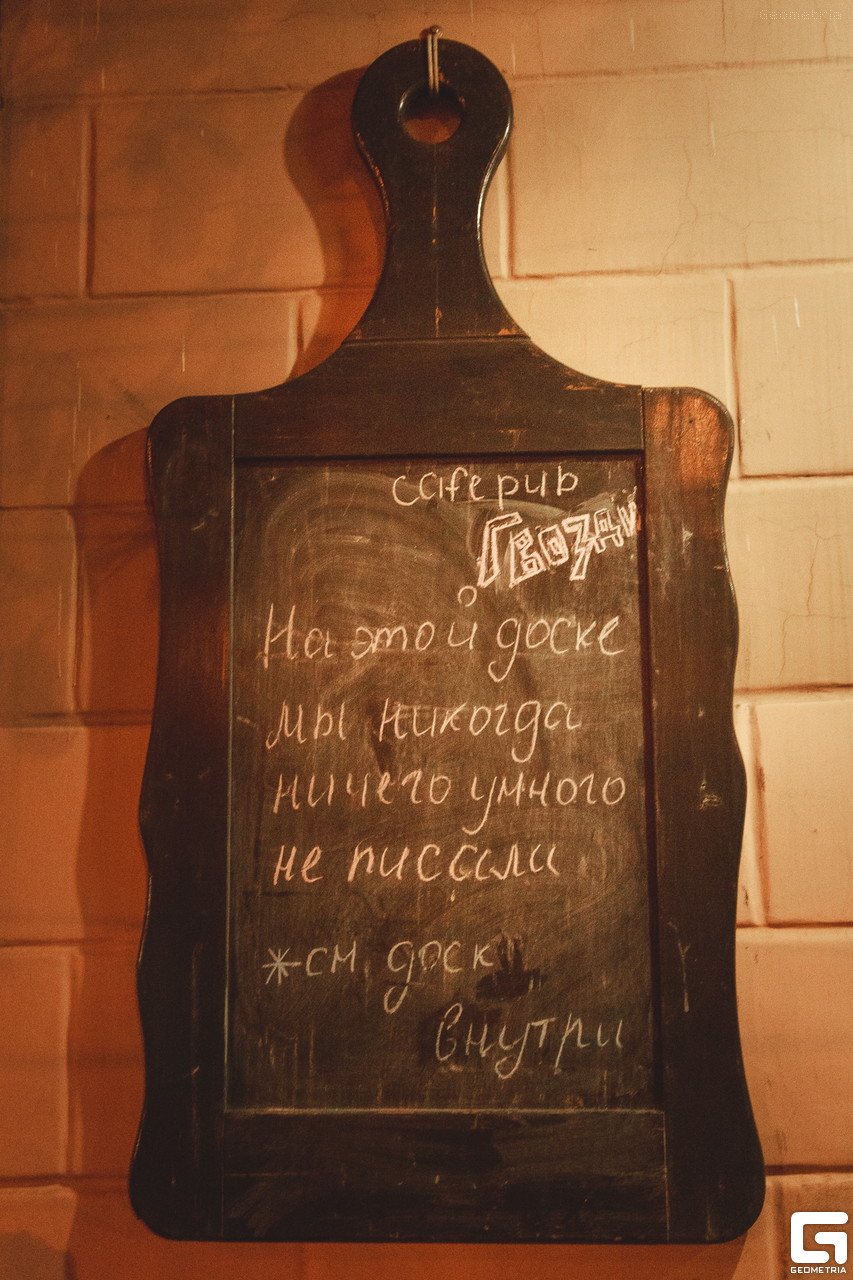 Geometria
cafe pub
Гвозди
На этой доске
мы никогда
ничего умного
не писали
*см. доск
внутри
GEOMETRIA